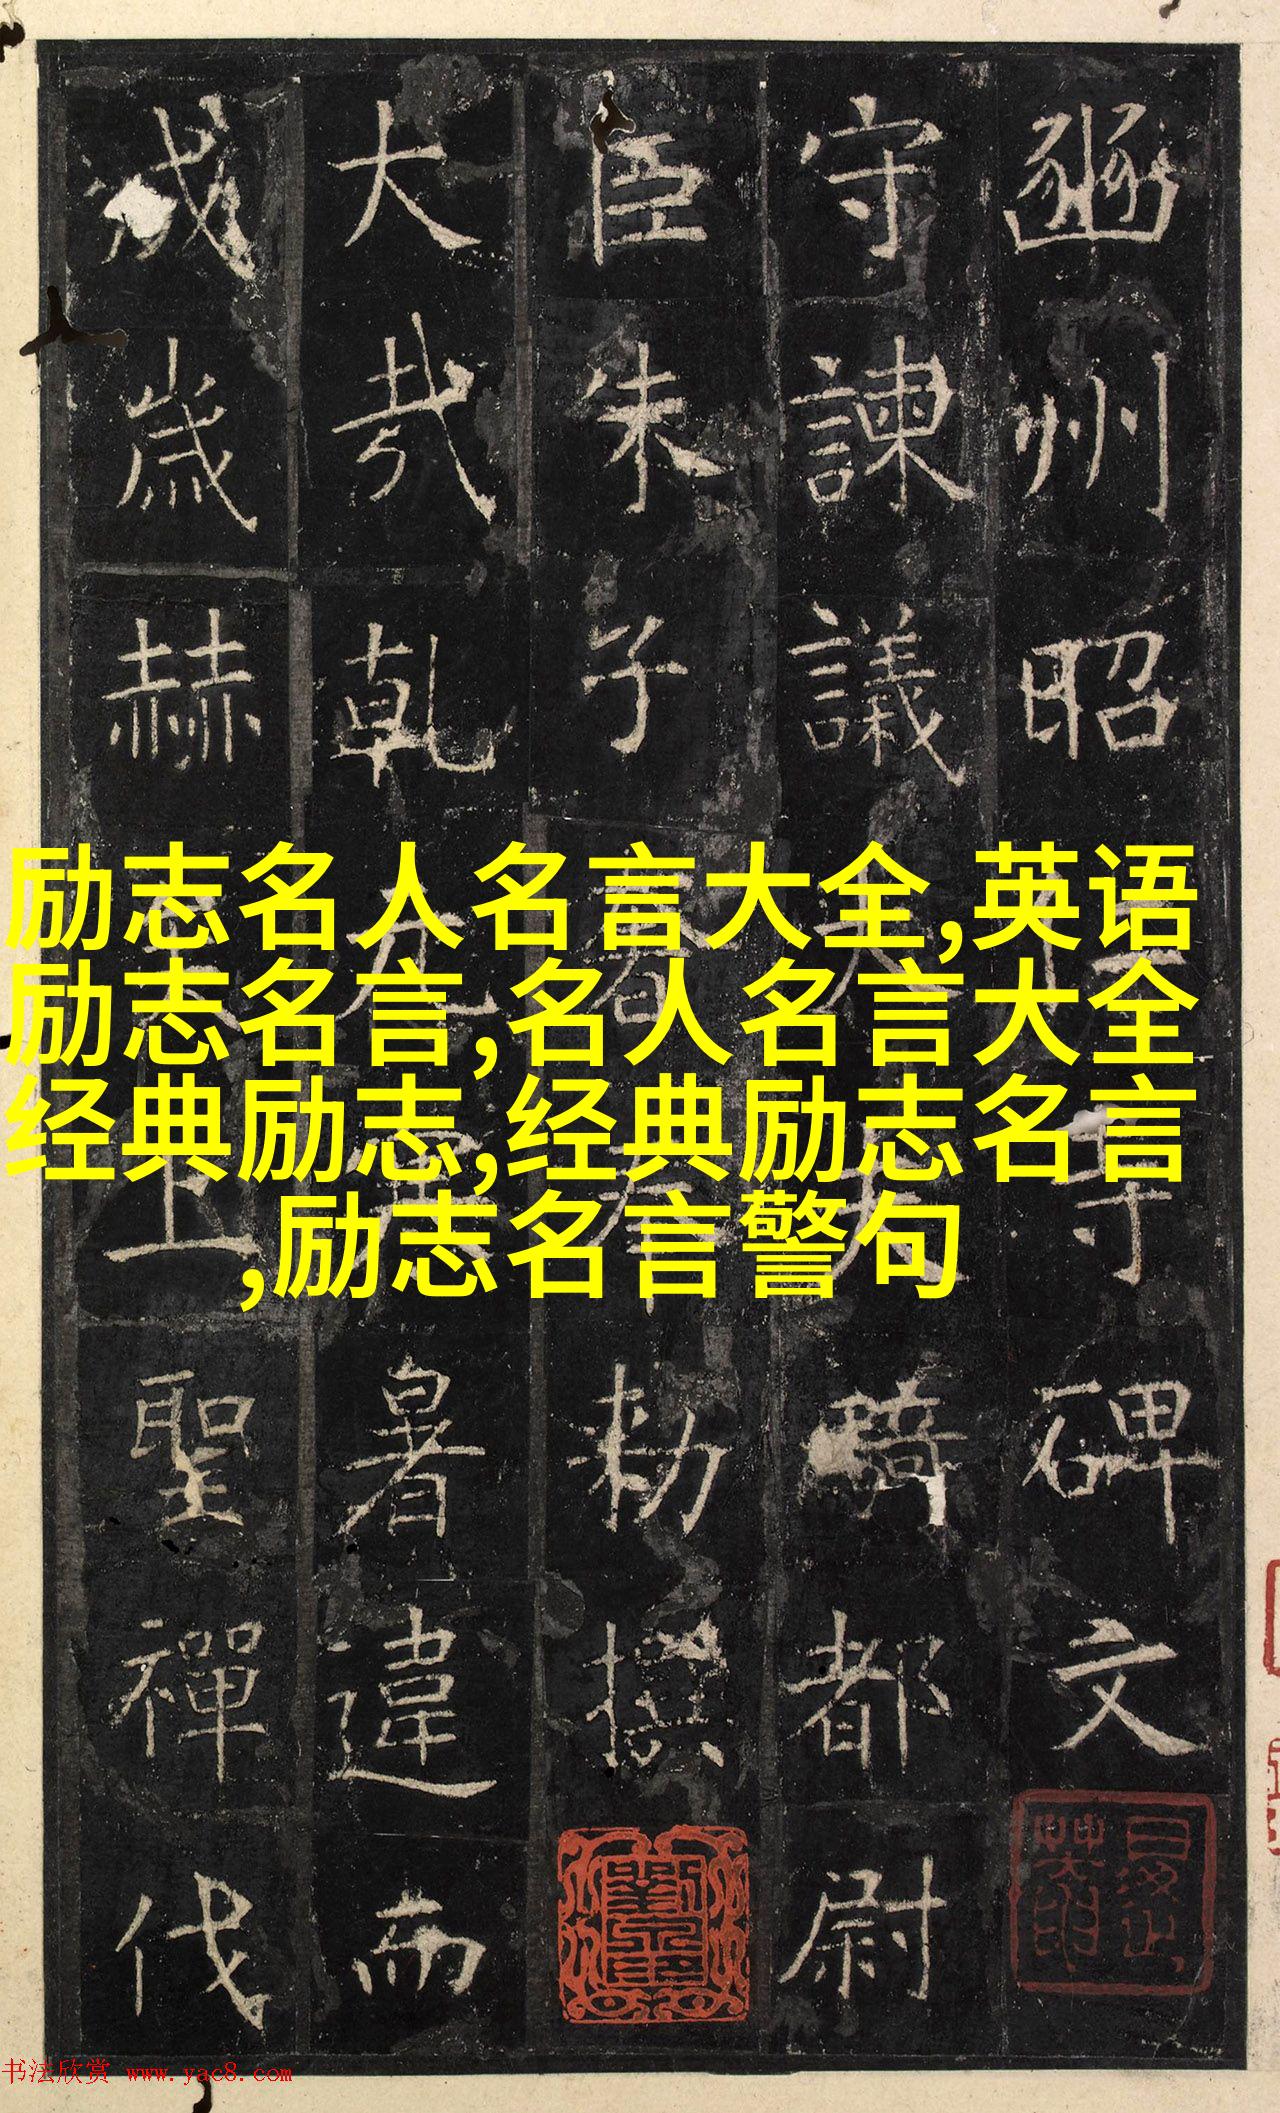 豳州昭仁寺碑文
守諫議大夫騎都尉
臣朱子奢奉勅撰
大哉乾元寒暑違而
成歲赫矣上聖禪代
励志名人名言大全,英语
励志名言,名人名言大全
经典励志,经典励志名言
,励志名言警句
书法欣赏 www.yac8.com